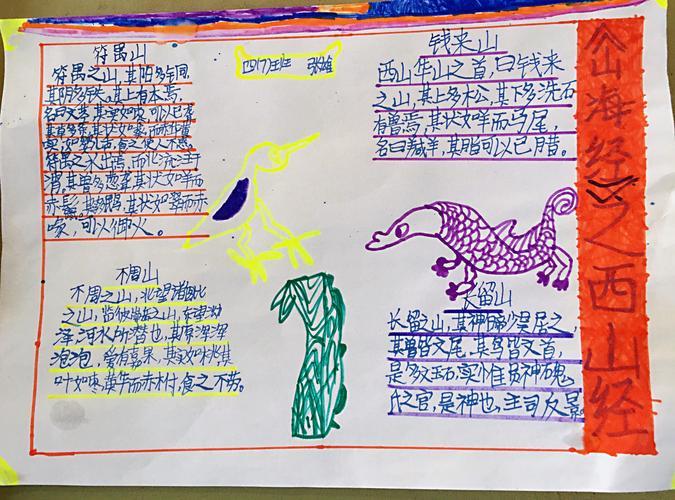 《山海经》之西山经
四(7)班
符禺山
符禺之山，其阳多铜，
其阴多铁。其上有木焉，
名曰文茎，其实如枣，可以已聋
其草多条，其状如葵，而赤华黄
实，如婴儿舌，食之使人不惑，
符禺之水出焉，而北流注于
渭，其兽多葱聋，其状如羊而
赤鬣，其鸟多鴖，其状如翠而赤
喙，可以御火。
钱来山
西山华山之首，曰钱来
之山，其上多松，其下多洗石
有兽焉，其状如羊而马尾，
名曰羬羊，其脂可以已腊。
不周山
不周之山，北望诸毗
之山，临彼岳崇之山，东望泑
泽，河水所潜也，其原浑浑
泡泡，爰有嘉果，其实如桃，其
叶如枣，黄华而赤柎，食之不劳。
长留山
长留之山，其神白帝少昊居之，
其兽皆文尾，其鸟皆文首，
是多文玉石，实惟员神磈
氏之宫，是神也，主司反景